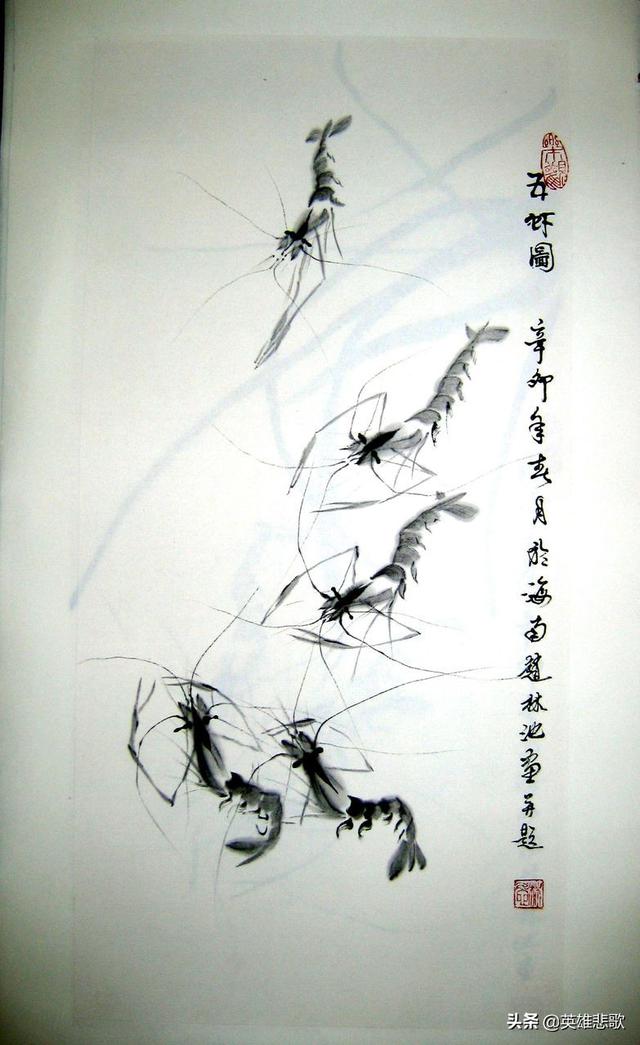 五虾圖
辛卯年春月於海南林池画并题
头条 @英雄悲歌